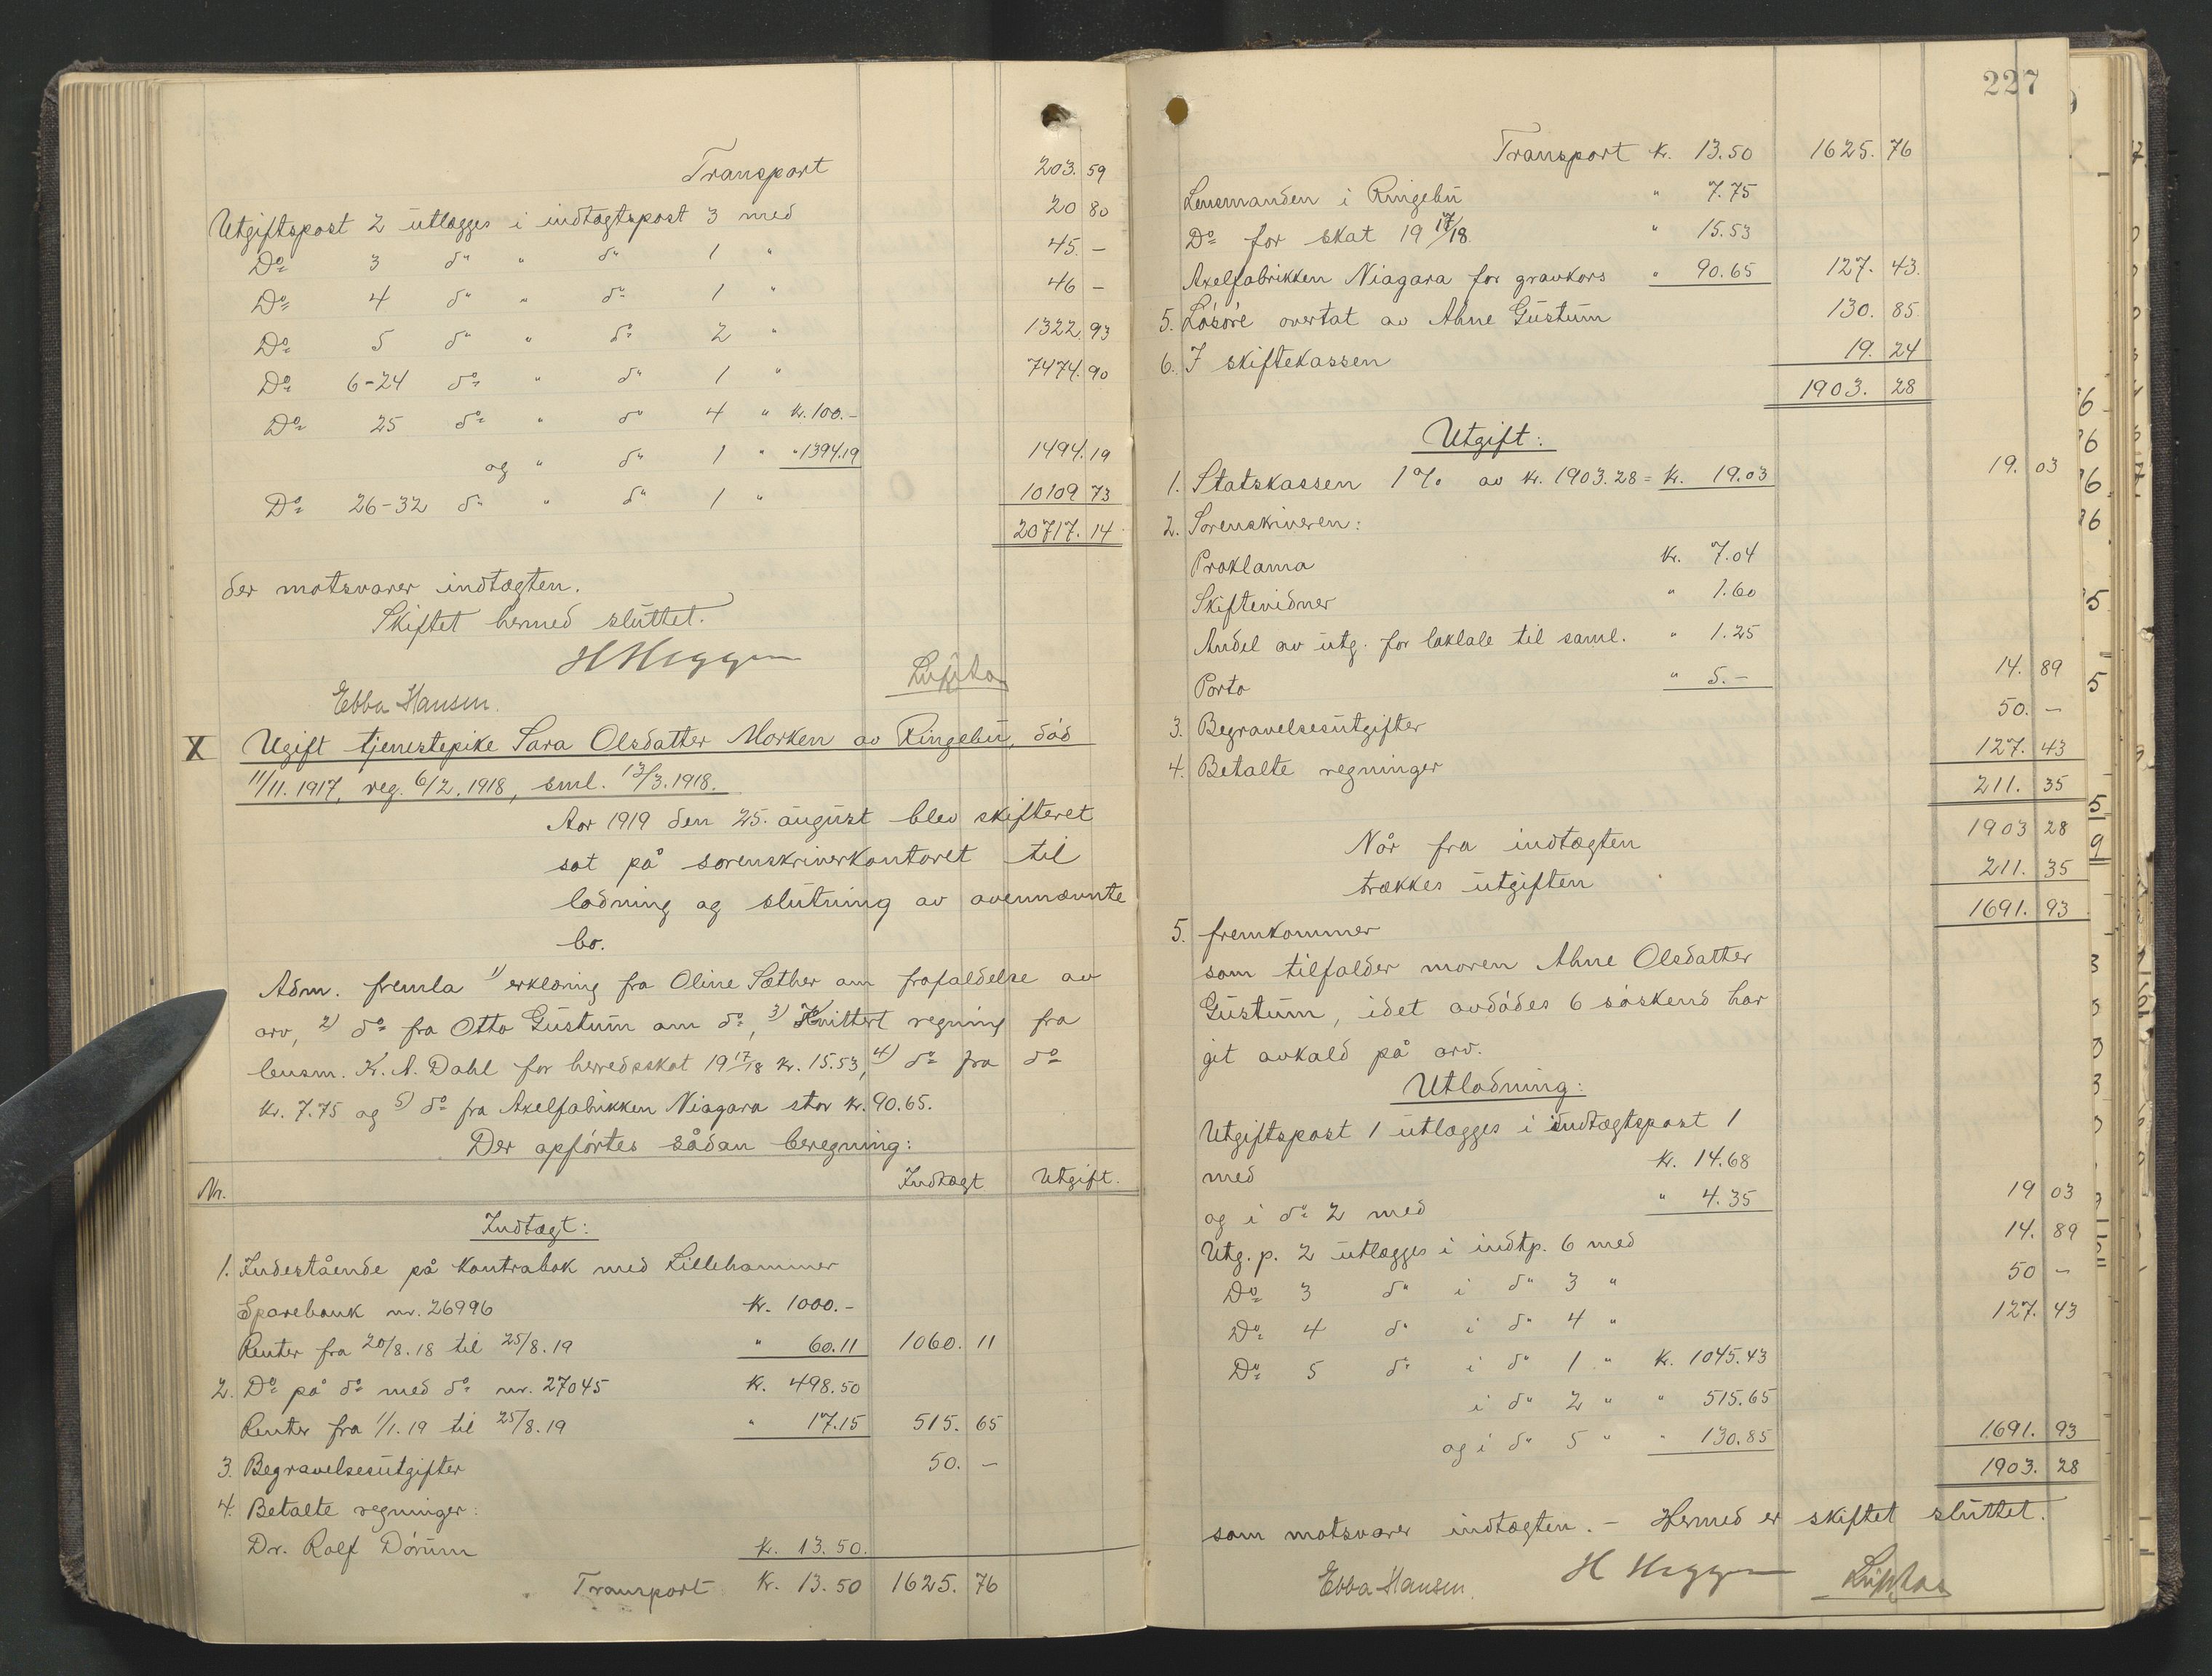 Transport 203. 59
Utgiftspost 2 utlægges i indtægtspost 3 med 20 80
Do 3 do " do 1 " 45. –
Do 4 do " do 1 " 46 –
Do 5 do " do 2 " 1322. 93
Do 6-24 do " do 1 " 7474. 90
Do 25 do " do 4 " kr. 100.–
og " do 1 " " 1394.19 1494. 19
Do 26-32 do " do 1 " 10109 73
20717. 14
der motsvarer indtægten.
Skiftet hermed sluttet.
H Heggen
Ebba Hansen.
X Ugift tjenestepike Sara Olsdatter Morken av Ringebu, død
11/11. 1917, reg. 6/2. 1918, sml. 13/3. 1918.
Aar 1919 den 25. august blev skifteret
sat på sorenskriverkontoret til
lodning og slutning av ovennævnte
bo.
Adm. fremla 1) erklæring fra Oline Sæther om frafaldelse av
arv, 2) do fra Otto Gustum om do, 3) Kvittert regning fra
lensm. K. A. Dahl for herredsskat 19 17/18 kr. 15.53, 4) do fra do
kr. 7.75 og 5) do fra Axelfabrikken Niagara stor kr. 90.65.
Der opførtes sådan beregning:
Nr. Indtægt Utgift.
Indtægt:
1. Indestående på kontrabok med Lillehammer
Sparebank nr. 26996 kr. 1000.–
Renter fra 20/8. 18 til 25/8. 19 " 60.11 1060. 11
2. Do på do med do nr. 27045 kr. 498.50
Renter fra 1/1. 19 til 25/8. 19 " 17.15 515. 65
3. Begravelsesutgifter 50. –
4. Betalte regninger:
Dr. Rolf Dørum kr. 13.50.
Transport kr. 13.50 1625. 76
227
Transport kr. 13.50 1625. 76
Lensmanden i Ringebu " 7.75
Do for skat 19 17/18 " 15.53
Axelfabrikken Niagara for gravkors " 90.65 127. 43.
5. Løsøre overtat av Ahne Gustum 130. 85
6. I skiftekassen 19. 24
1903. 28
Utgift:
1. Statskassen 1% av kr. 1903.28 = kr. 19.03 19. 03
2. Sorenskriveren:
Proklama kr. 7.04
Skiftevidner " 1.60
Andel av utg. for loklale til saml. " 1.25
Porto " 5.– 14. 89
3. Begravelsesutgifter 50. –
4. Betalte regninger 127. 43
211. 35
Når fra indtægten 1903 28
trækkes utgiften 211. 35
5. fremkommer 1691. 93
som tilfalder moren Ahne Olsdatter
Gustum, idet avdødes 6 søskend har
git avkald på arv.
Utlodning:
Utgiftspost 1 utlægges i indtægtspost 1
med kr. 14.68
og i do 2 med " 4.35 19 03
Utg. p. 2 utlægges i indtp. 6 med 14. 89
Do 3 do i do 3 " 50 –
Do 4 do i do 4 " 127. 43
Do 5 do i do 1 " kr. 1045.43
i do 2 " " 515.65
og i do 5 " " 130.85 1691. 93
1903. 28
som motsvarer indtægten. – Hermed er skiftet sluttet.
Ebba Hansen. H Heggen